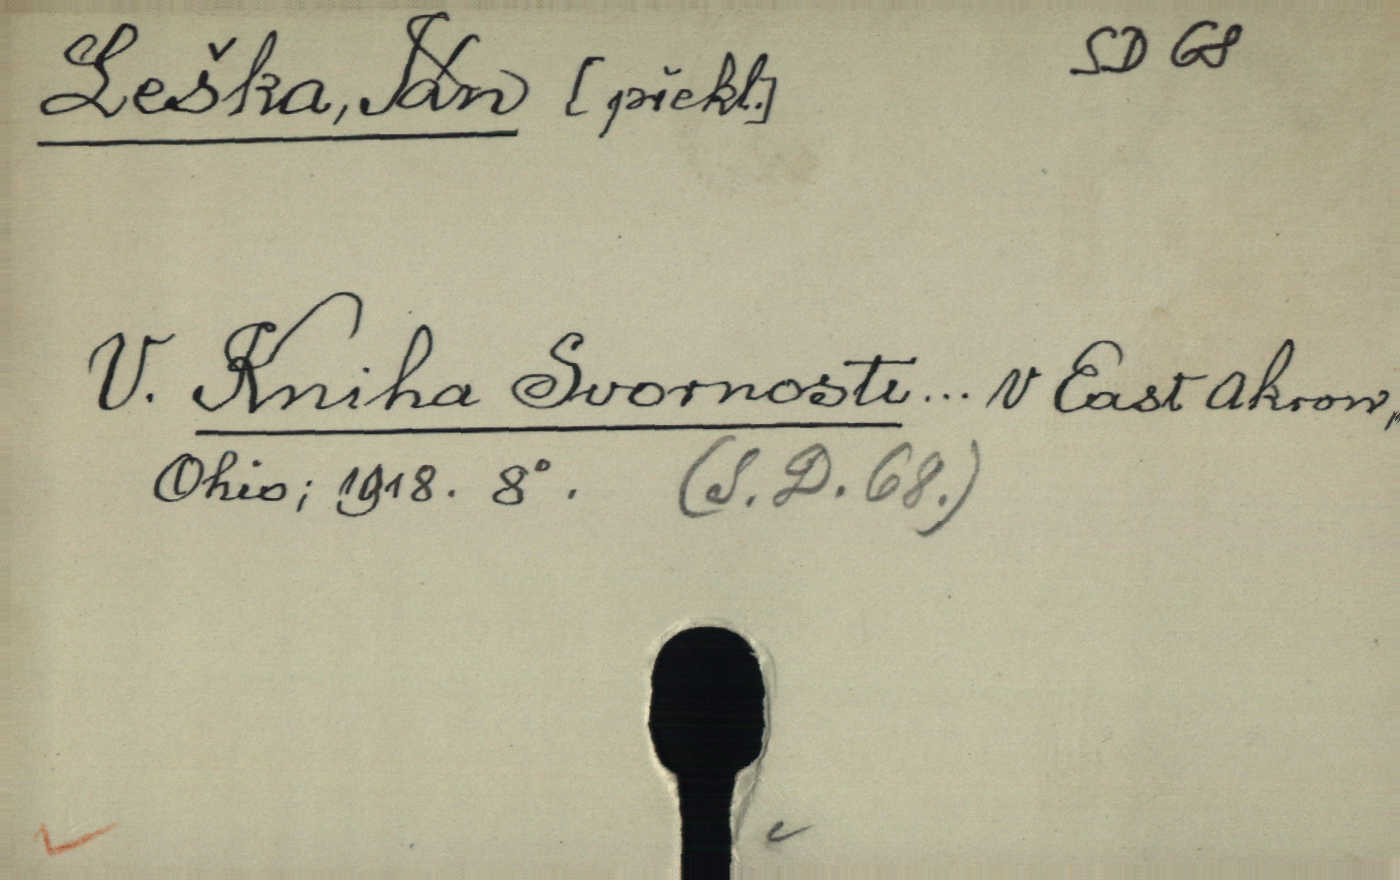 Leška, Ján [překl.] SD 68
V. Kniha Svornosti... v East Akron,
Ohio; 1918. 8°. (S.D. 68.)